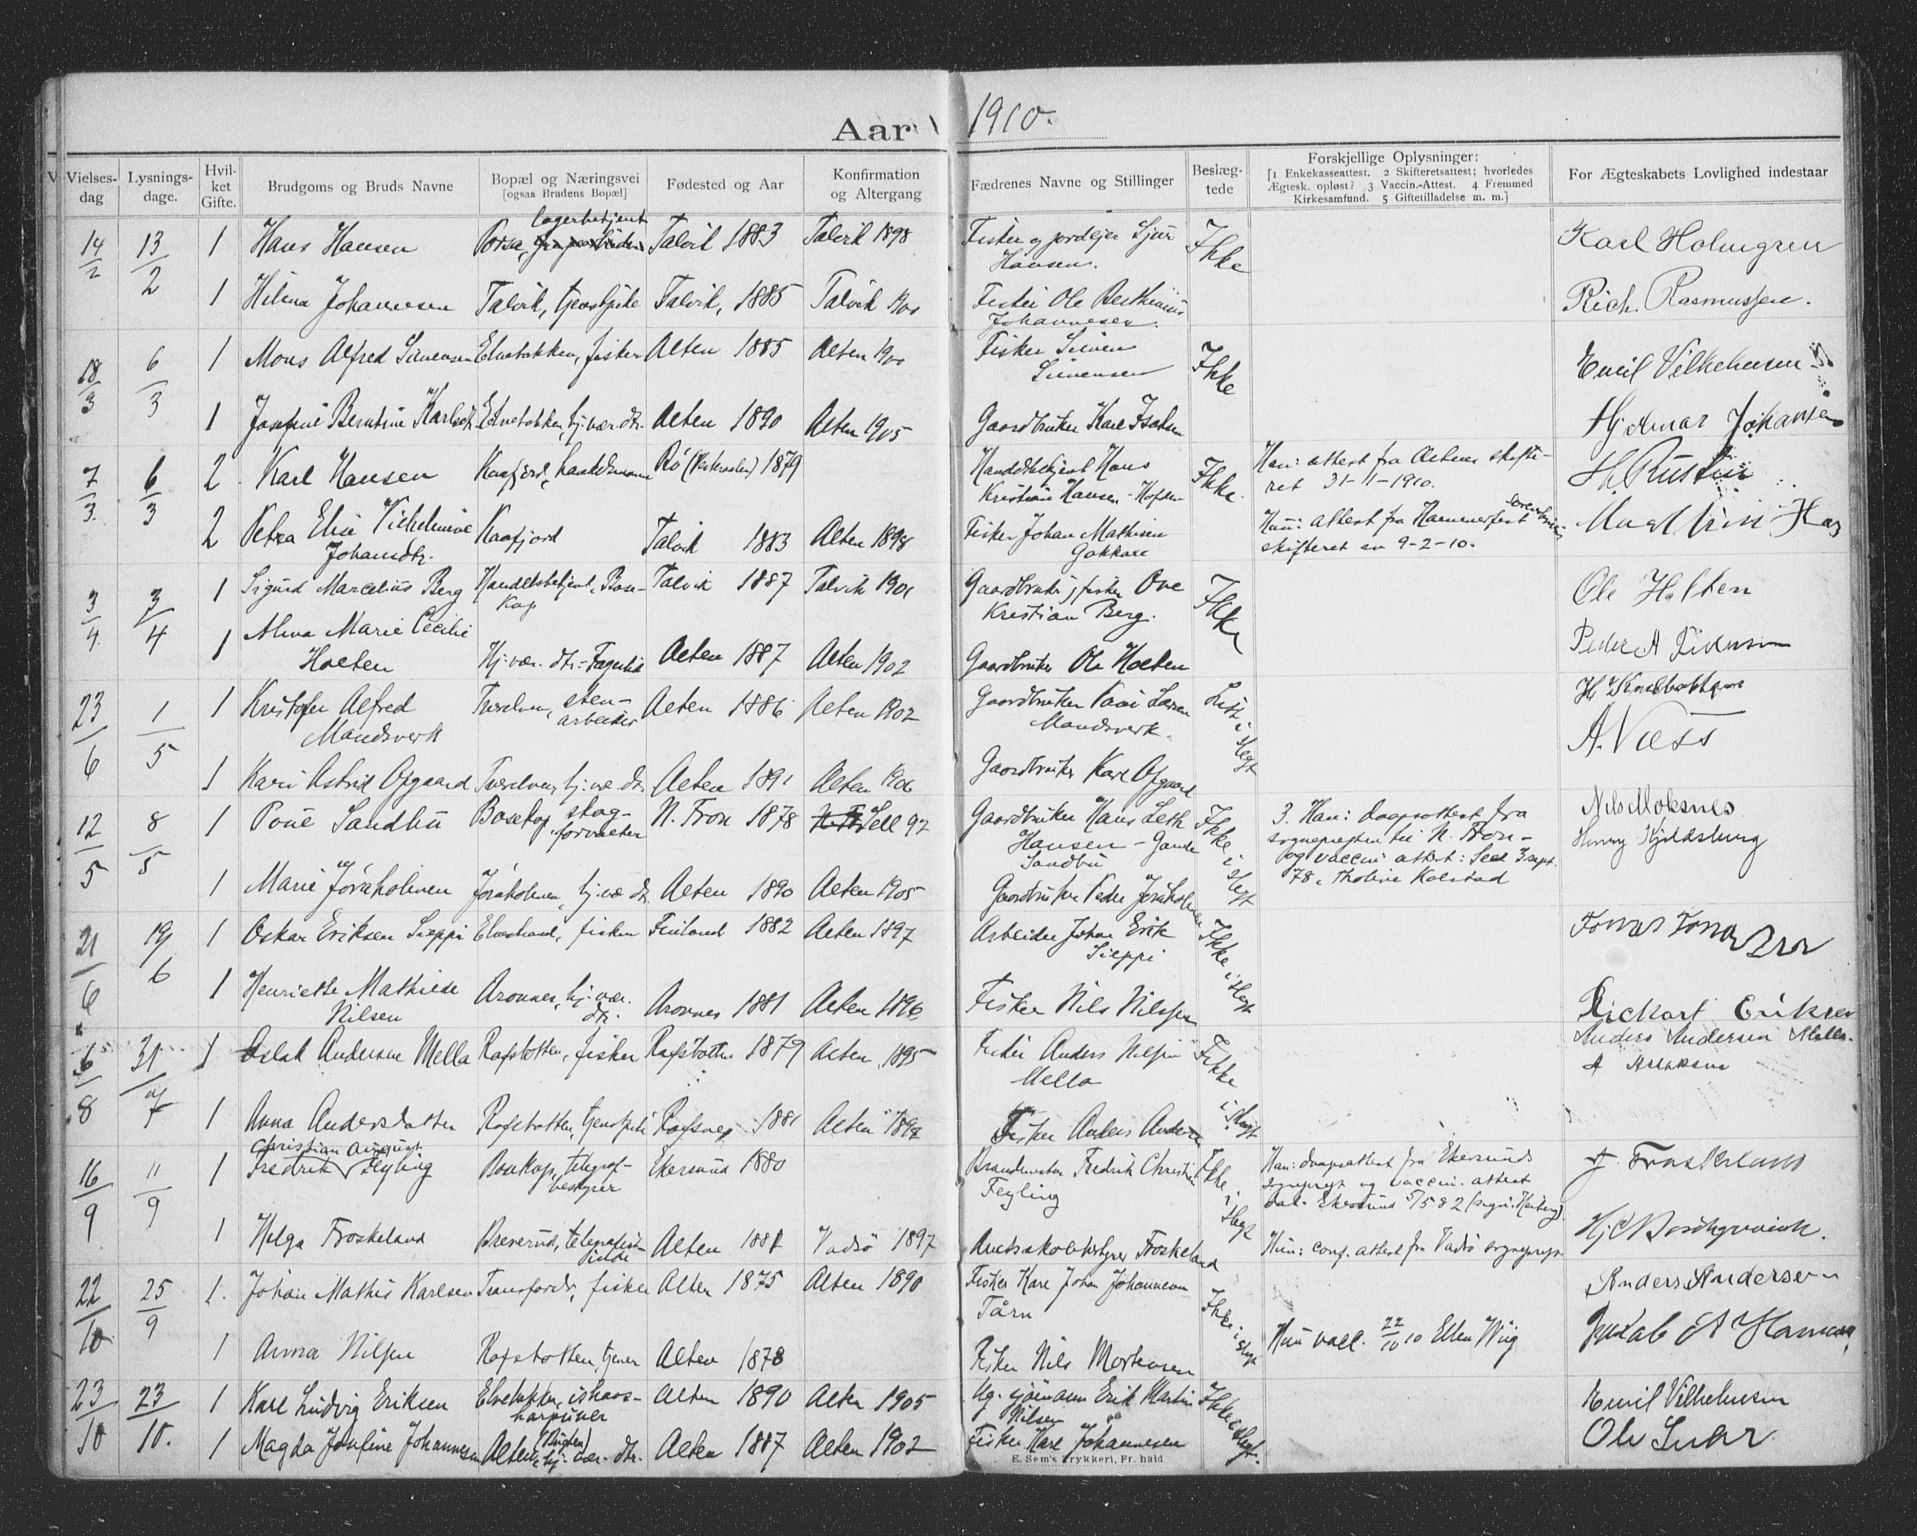 Aar 1910.
Vielsesdag Lysningsdage. Hvilket Gifte. Brudgoms og Bruds Navne Bopæl og Næringsvei [ogsaa Brudens Bopæl] Fødested og Aar Konfirmation og Altergang Fædrenes Navne og Stillinger Beslægtede Forskjellige Oplysninger: [1 Enkekasseattest. 2 Skifteretsattest; hvorledes Ægtesk. opløst? 3 Vaccin.-Attest. 4 Fremmed Kirkesamfund. 5 Giftetilladelse m. m.] For Ægteskabets Lovlighed indestaar
14/2 13/2 1 Hans Hansen lagerbetjent Porsa, Talvik 1883 Talvik 1898 Fisker og jordejer Sjur Hansen. Ikke Karl Holmgren
1 Hilma Johannesen Talvik, tjenstpike Talvik, 1885 Talvik 1900 Fisker Ole Berthinius Johannesen. Rich. Rasmussen.
18/3 6/3 1 Mons Alfred Simensen Elvebakken, fisker Alten 1885 Alten 1900 Fisker Simen Simensen Ikke Emil Vilhelmsen
1 Josefine Berntine Karlsdtr. Elvebakken, hj. vær. dtr. Alten 1890 Alten 1905 Gaardbruker Karl Isaksen Hjalmar Johansen
7/3. 6/3 2 Karl Hansen Kaafjord, handelsmann Bø (Vesteraalen) 1879 Handelsbetjent Hans Kristian Hansen-Hofsen Ikke. Han: attest fra Altens skifteret 31-1-1910. H. Rustin
2 Petra Elise Vilhelmine Johansdtr. Kaafjord Talvik 1883 Alten 1898 Fisker Johan Mathisen Gakkare Hun: attest fra Hammerfest sorenskriv. skifteret av 9-2-10.
3/4. 3/4 1 Sigurd Marcelius Berg Handelsbetjent, Bosekop Talvik 1887 Talvik 1901 Gaardbruker, fisker Ove Kristian Berg. Ikke Ole Holten
1 Alma Marie Cecilie Holten Hj. vær. dtr. Alten 1887 Alten 1902 Gaardbruker Ole Holten Peder A
23/6 1/5 1 Kristofer Alfred Mandsverk Tverelven, stenarbeider Alten 1886 Alten 1902 Gaardbruker Mandsverk. Litt i slegt H
1 Kari Astrid Opgaard Tverelven, hj. væ. dtr. Alten 1891 Alten 1906 Gaardbruker Karl Opgaard A. Næss
12/5 8/5 1 Poul Sandbu Bosekop skogforvalter N. Fron 1878 Sell 92 Gaardbruker Hans Hansen - Sandbu Ikke i slegt 3. Han: daapsattest fra sognepresten til N. Fron - og vaccin. attest: Sell 3 sept. 78, Tholine Kolstad Nils Moksnes
1 Marie Jøraholmen Jøraholmen, hj. væ. dtr. Alten 1890 Alten 1905 Gaardbruker Peder Jøraholmen Henry Kjeldsberg
21/6 19/6 1 Oskar Eriksen Sieppi Elvestrand, fisker Finland 1882 Alten 1897 Arbeider Johan Erik Sieppi Ikke i slegt
1 Henriette Mathilde Nilsen Aronnes, hj. vær. dtr. Aronnes 1881 Alten 1896 Fisker Nils Nilsen Rickart Eriksen
6/8 31/7 1 Aslak Andersen Mella Rafsbotten, fisker Rafsbotten 1879 Alten 1895 Fisker Anders Nilsen Mella Ikke i slegt Anders Andersen Mella.
1 Anna Andersdatter Rafsbotten, tjenstpike 1881 Alten 1897 Fisker Anders Andersen A
16/9 11/9 1 Christian August Fredrik Feyling Bosekop, telegrafbestyrer Ekersund 1880 Brandmester Fredrik Christian Feyling Ikke i slegt Han: daapsattest fra Ekersunds sogneprest og vaccin. attest dat. Ekersund 5/5 82 J. Froskeland
1 Helga Froskeland Breverud, telegrafistinde Alten 1881 Vadsø 1897 Amtsskolebestyrer Froskeland Hun: conf. attest fra Vadsø sogneprest
22/10 25/9 1. Johan Mathis Karlsen Tranfjord, fisker Alten 1875 Alten 1890 Fisker Karl Johan Johannesen Tårn Ikke i slegt Anders Andersen
1 Anna Nilsen Rafsbotten, tjener Alten 1878 Fisker Nils Mortensen Hun vacc. 22/10 10 Ellen Wiig Jakob A Hansen
23/10 23/10. 1 Karl Ludvig Eriksen Elvebakken, ishavsharpuner Alten 1890 Alten 1905 Ug. sjømann Erik Martin Nilsen Ikke i slegt. Emil Vilhelmsen
1 Magda Josefine Johannesen Alten, hj. vær. dtr. Alten 1887 Alten 1902 Fisker Karl Johannesen
E. Sem's Trykkeri, Fr. hald